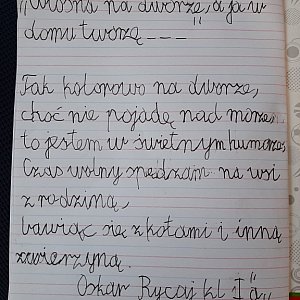 „Wiosna na dworze, a ja w
domu tworzę ---"
Tak kolorowo na dworze,
choć nie pojadę nad morze,
to jestem w świetnym humorze,
Czas wolny spędzam na wsi
z rodziną,
bawiąc się z kotami i inną
zwierzyną.
Oskar Rycaj kl. I "a"